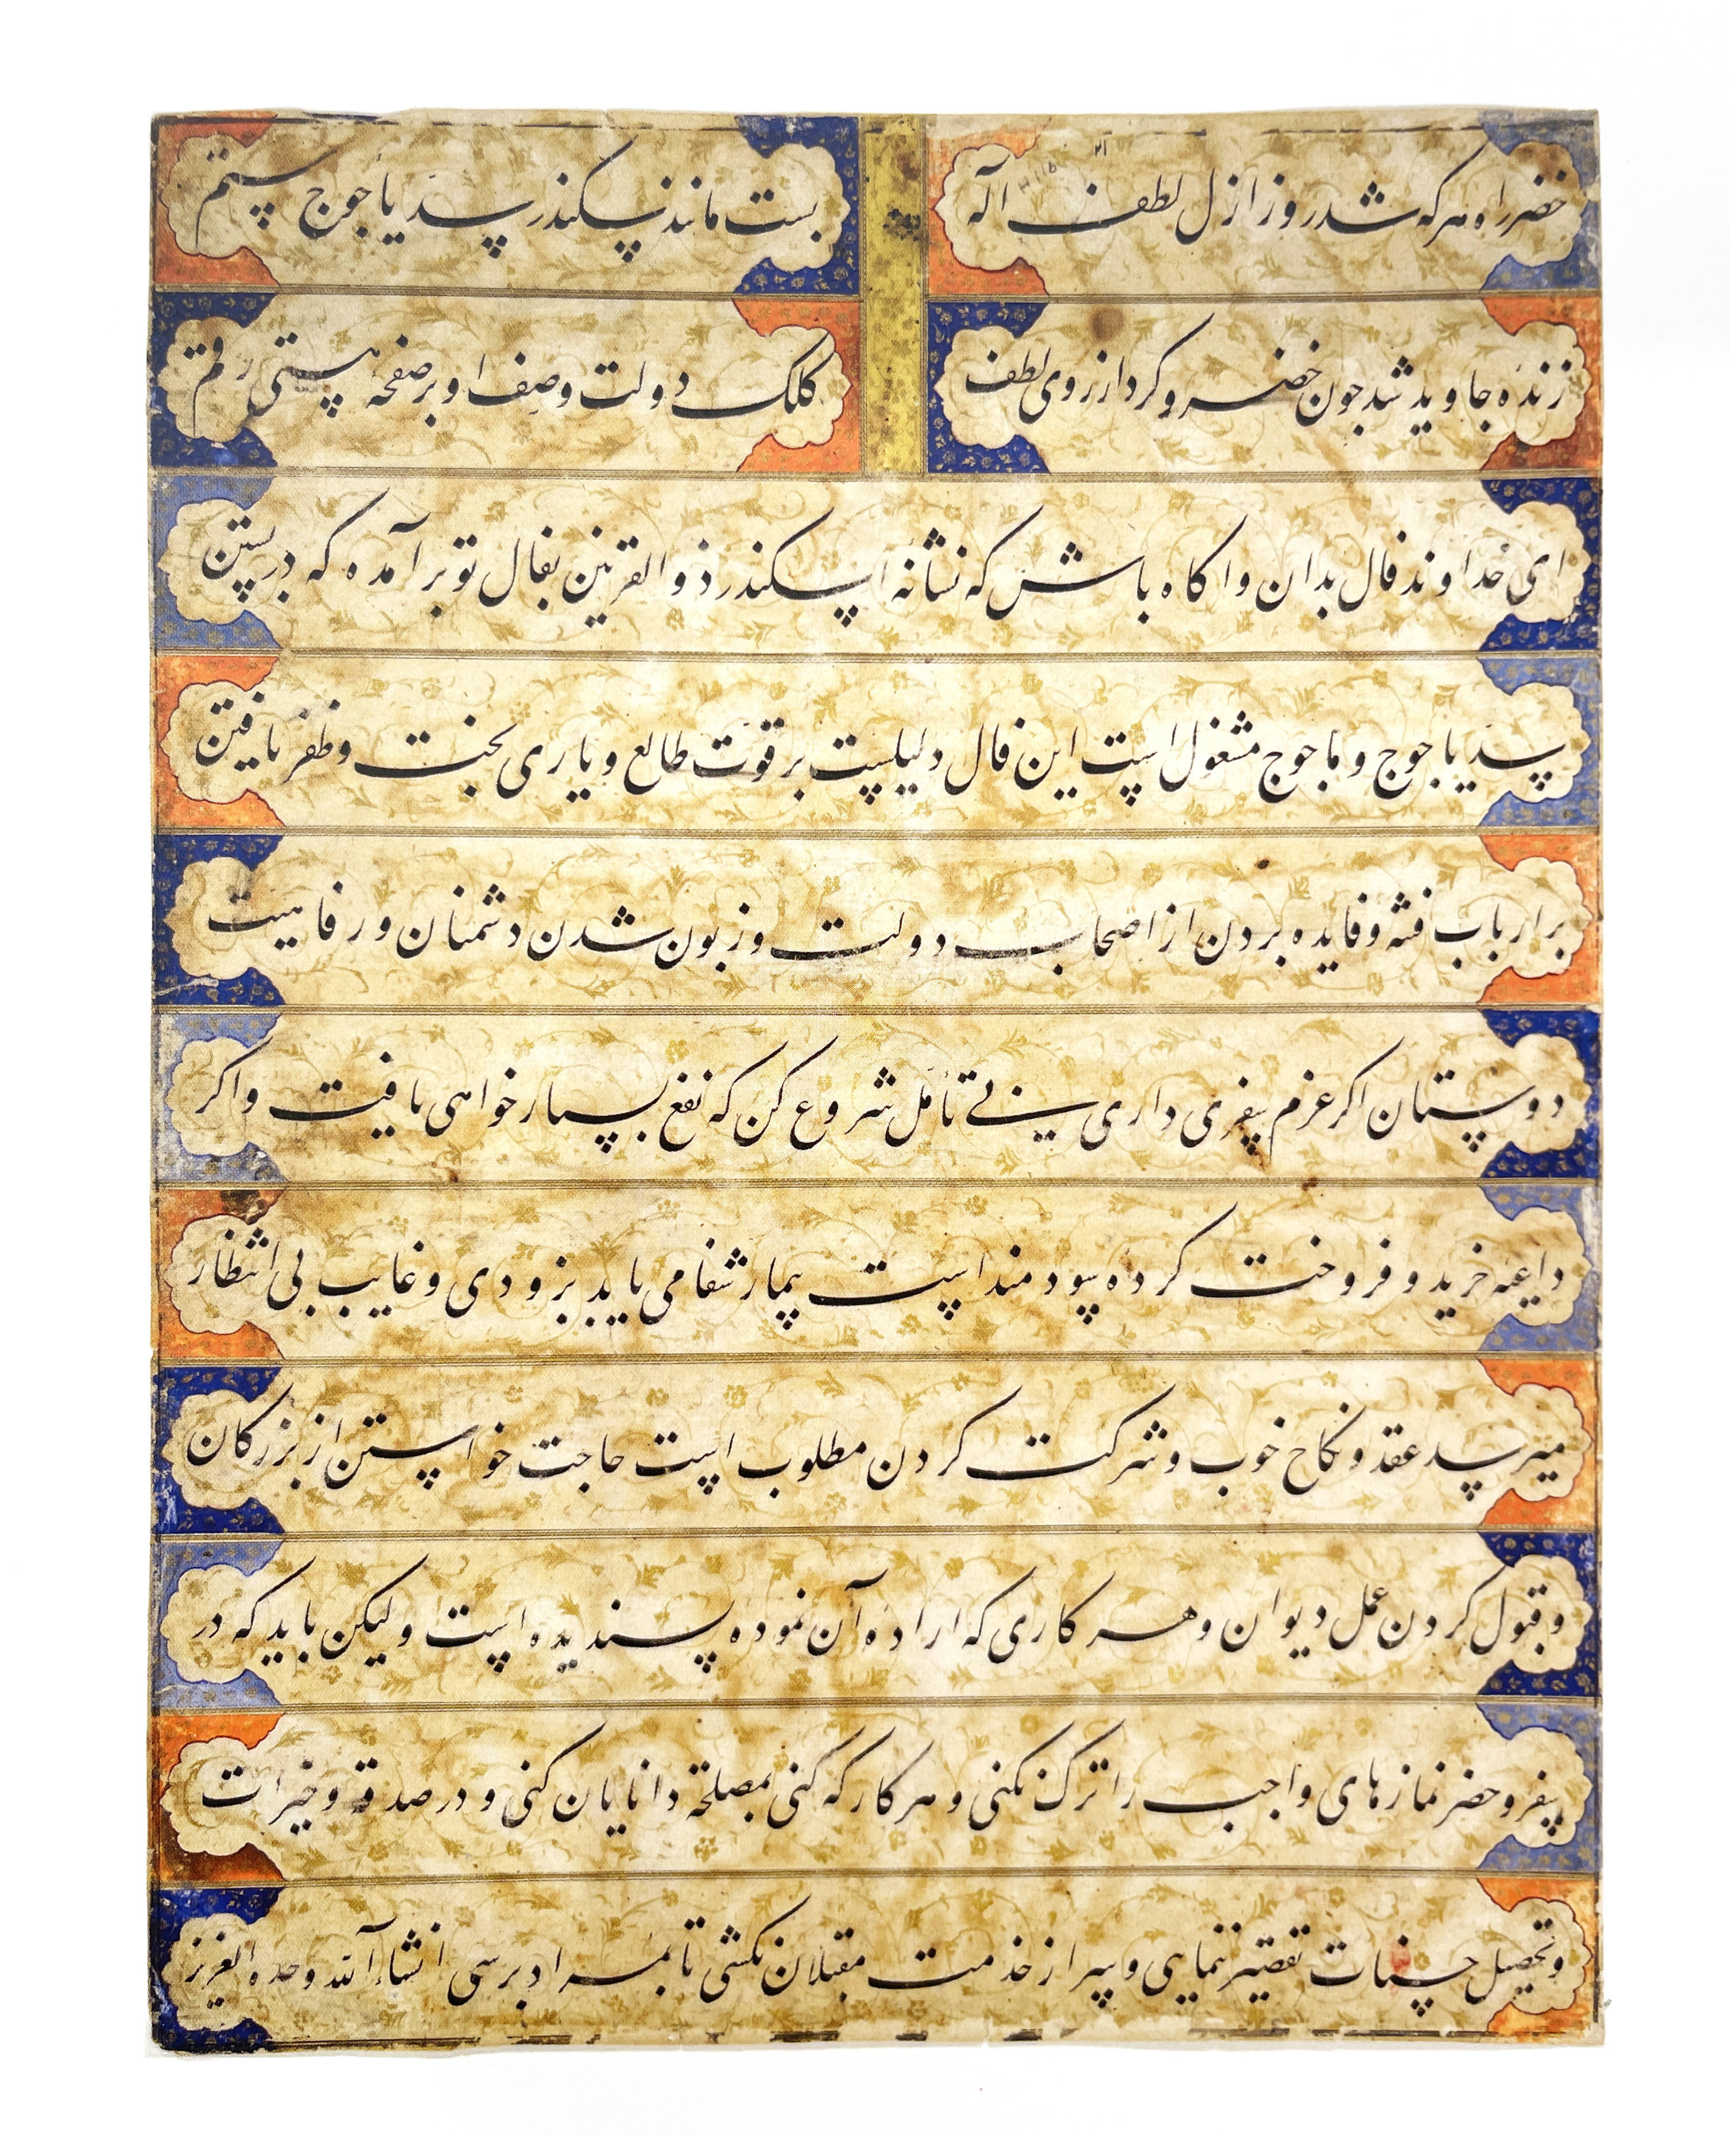 خضر راه هر که شد روز ازل لطف اله
بست مانند سکندر سد یأجوج ستم
زنده جاوید شد چون خضر و کرد از روی لطف
کلک دولت وصف او بر صفحهٔ هستی رقم
ای خداوند فال بدان و اکاه باش که نشانه اسکندر ذو القرنین بفال تو برآمده که در بستن
سد یاجوج و ماجوج مشغول است این فال دلیلست بر قوت طالع و یاری بخت و ظفر یافتن
بر ارباب فتنه و فایده بردن از اصحاب دولت و زبون شدن دشمنان و رفاهیت
دوستان اکر عزم سفری داری بی تأمل شروع کن که نفع بسیار خواهی یافت و اکر
داعیه خرید و فروخت کرده سودمند است بیمار شفا می یابد بزودی و غایب بی انتظار
میرسد عقد و نکاح خوب و شرکت کردن مطلوب است حاجت خواستن از بزرکان
و قبول کردن عمل دیوان و هر کاری که اراده آن نموده پسندیده است ولیکن باید که در
سفر و حضر نمازهای واجب را ترک نکنی و هر کار که کنی بمصلحة دانایان کنی و در صدقه و خیرات
و تحصیل حسنات تقصیر ننمایی و سر از خدمت مقبلان نکشی تا بمراد برسی انشاء الله وحده العزیز